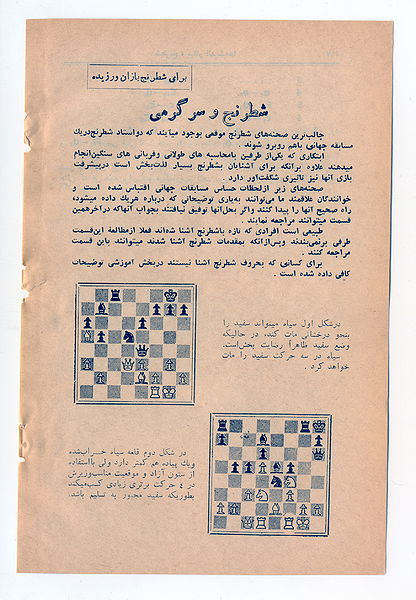 برای شطرنج‌بازان ورزیده
شطرنج و سرگرمی
جالب‌ترین صحنه‌های شطرنج موقعی بوجود میآیند که دو استاد شطرنج در یک
مسابقه جهانی باهم روبرو شوند.
ابتکاری که یکی از طرفین با محاسبه های طولانی وقربانی های سنگین انجام
میدهند علاوه برآنکه برای آشنایان بشطرنج بسیار لذت‌بخش است درپیشرفت
بازی آنها نیز تاثیری شگفت‌آور دارد.
صحنه‌های زیر از لحظات حساس مسابقات جهانی اقتباس شده است و
خوانندگان علاقمند ما می‌توانند به‌یاری توضیحاتی که درباره هریک داده میشود،
راه صحیح آنها را پیدا کنند واگر بحل آنها توفیق نیافتند بجواب آنها که در آخر همین
قسمت میتوانند مراجعه نمایند.
طبیعی است افرادی که تازه باشطرنج آشنا شده‌اند فعلا از مطالعه این قسمت
طرفی برنمی‌بندند وپس از آنکه بمقدمات شطرنج آشنا شدند میتوانند باین قسمت
مراجعه کنند.
برای کسانی که بحروف شطرنج آشنا نیستند دربخش آموزشی توضیحات
کافی داده شده است.
درشکل اول سیاه میتواند سفید را
بنحو درخشانی مات کند، در حالیکه
وضع سفید ظاهراً رضایت بخش‌است.
سیاه در سه حرکت سفید را مات
خواهد کرد.
در شکل دوم قلعه سیاه خراب‌شده
ویک پیاده هم کمتر دارد ولی بااستفاده
از ستون آزاد و موقعیت مناسب وزیرش
در ٤ حرکت برتری زیادی کسب میکند
بطوریکه سفید مجبور به تسلیم باشد.